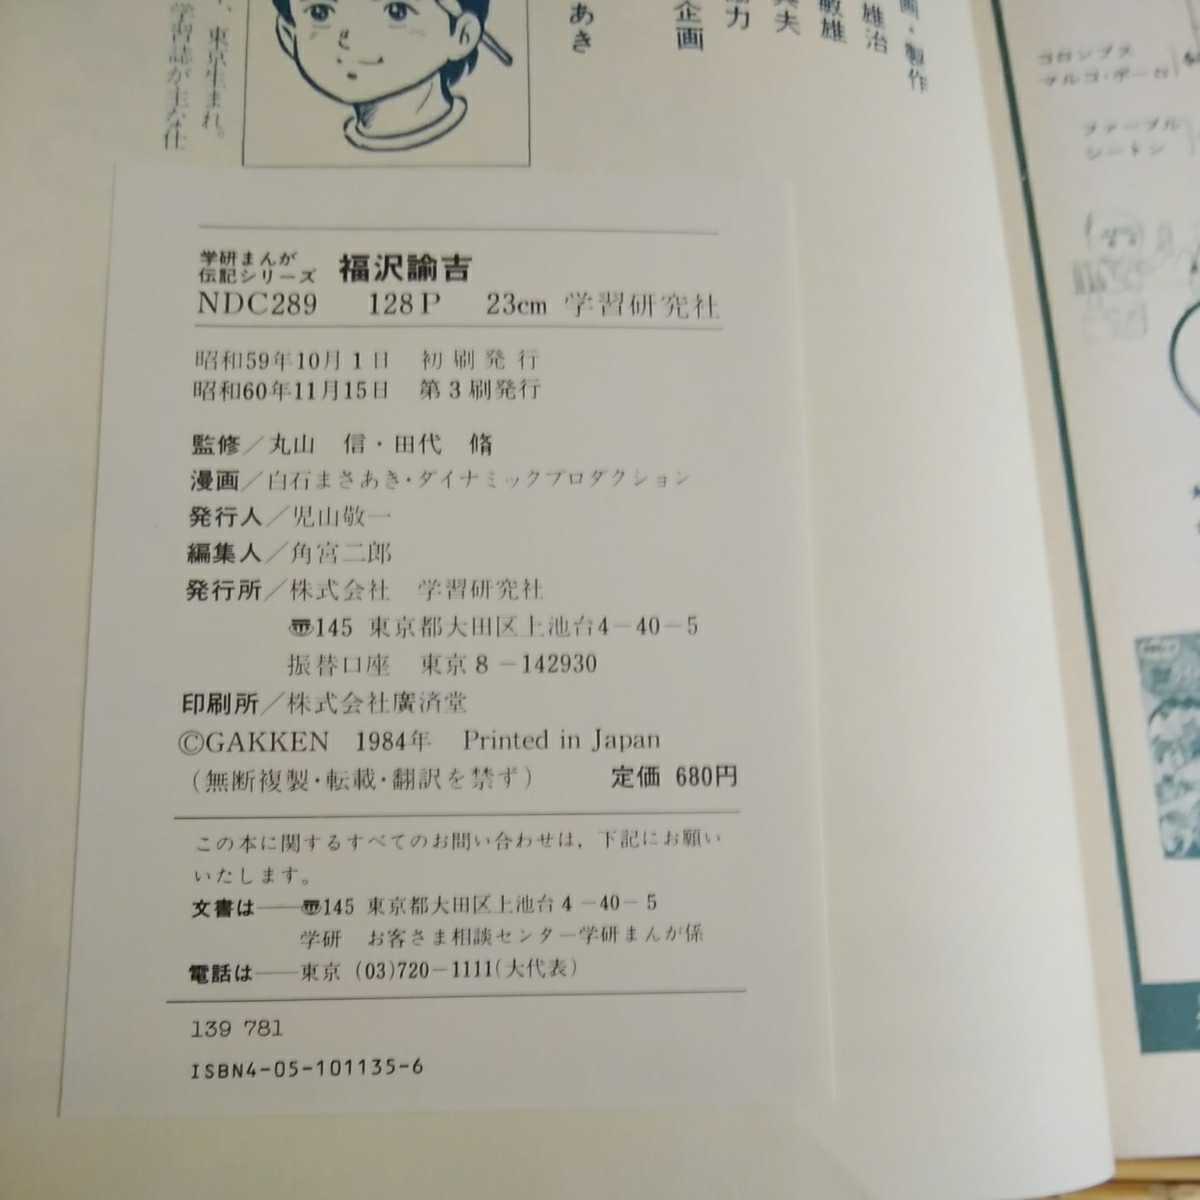 画・製作
雄治
敏雄
夫
力
企画
あき
、東京生まれ。
学習誌が主な仕
コロンブス
マルコ・ポーロ
ファーブル
シートン
学研まんが
伝記シリーズ 福沢諭吉
NDC289 128P 23cm 学習研究社
昭和59年10月1日 初刷発行
昭和60年11月15日 第3刷発行
監修/丸山 信・田代 脩
漫画/白石まさあき・ダイナミックプロダクション
発行人/児山敬一
編集人/角宮二郎
発行所/株式会社 学習研究社
〠145 東京都大田区上池台4-40-5
振替口座 東京8-142930
印刷所/株式会社廣済堂
©GAKKEN 1984年 Printed in Japan
(無断複製・転載・翻訳を禁ず) 定価 680円
この本に関するすべてのお問い合わせは，下記にお願い
いたします。
文書は──〠145 東京都大田区上池台4-40-5
学研 お客さま相談センター学研まんが係
電話は──東京(03)720-1111(大代表)
139 781
ISBN4-05-101135-6